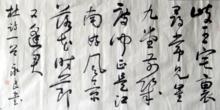 岐王宅裏
尋常見崔
九堂前幾
度聞正是江
南好風景
落花時節
又逢君
杜詩